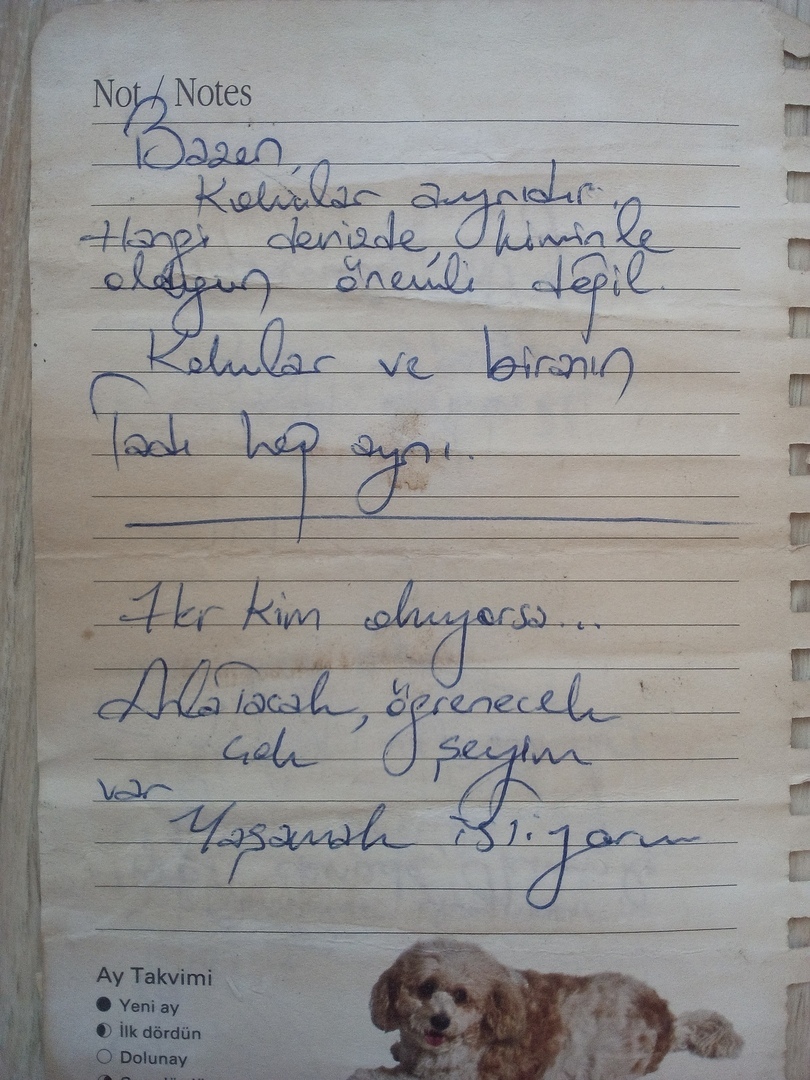 Not / Notes
Bazen,
Kokular aynıdır.
Hangi denizde, kiminle
olduğun önemli değil.
Kokular ve biranın
Tadı hep aynı.
Her kim okuyorsa...
Anlatacak, öğrenecek
çok şeyim
var
Yaşamak istiyorum
Ay Takvimi
Yeni ay
İlk dördün
Dolunay